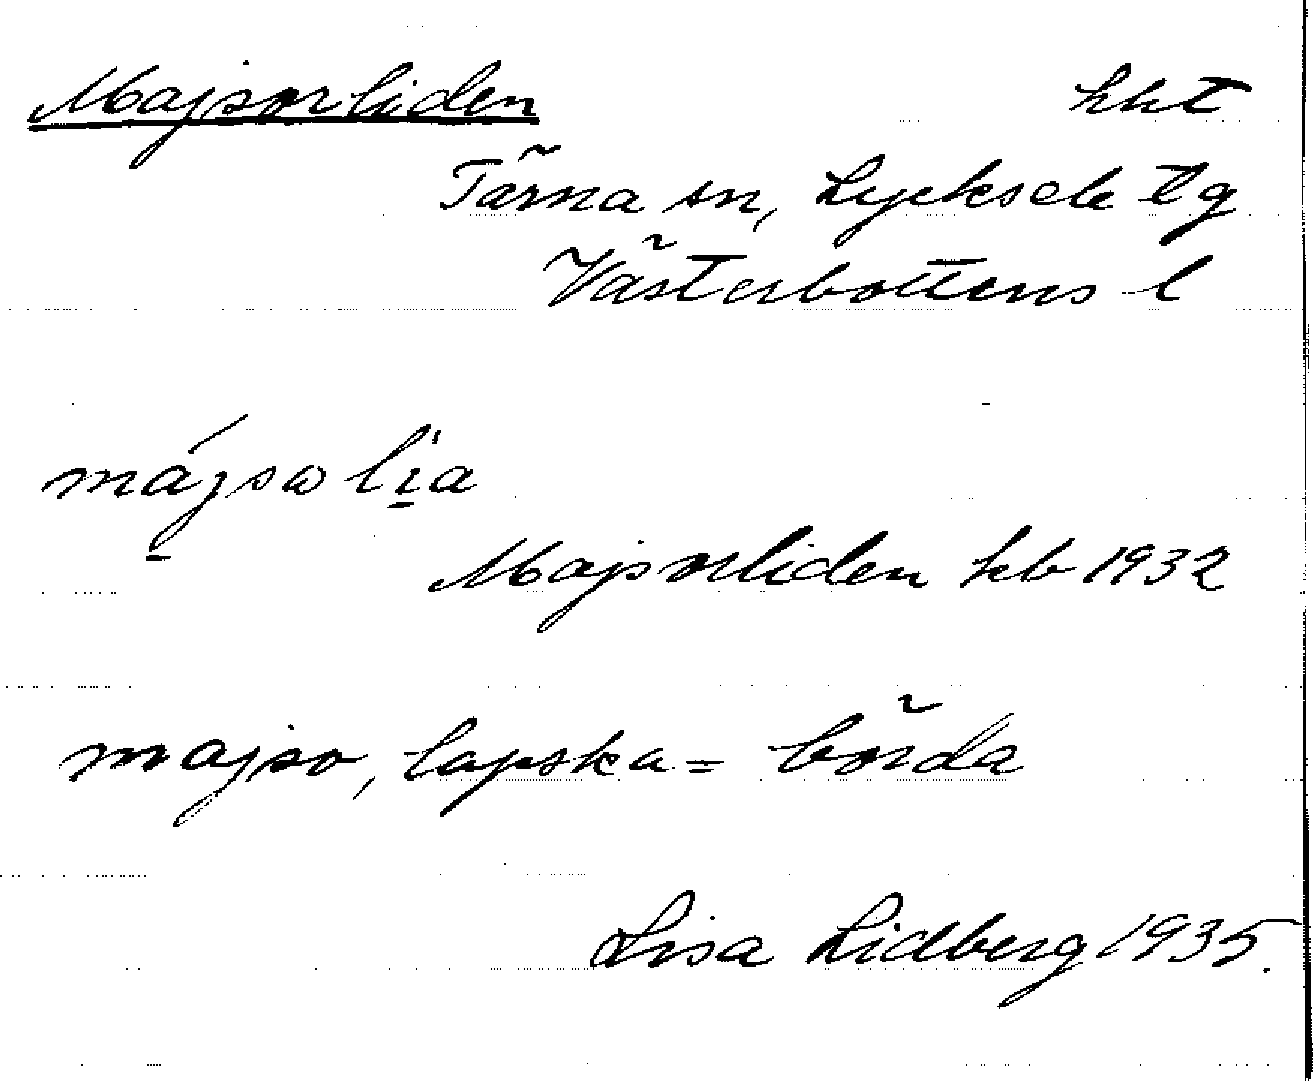 Majsorliden hht
Tärna sn, Lycksele tg
Västerbottens l
májsω lịa
Majsorliden kb 1932
majso, lapska = börda
Lisa Lidberg 1935.